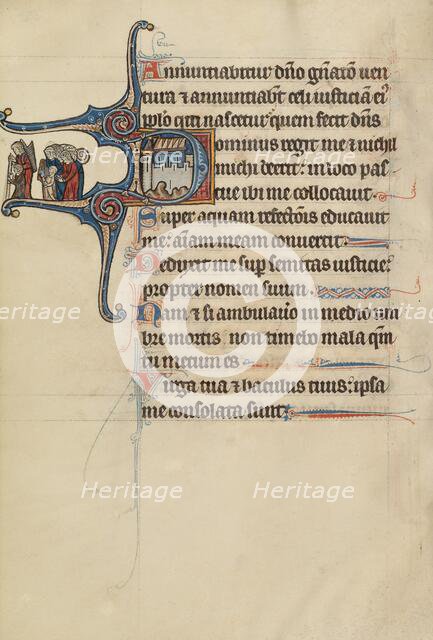 Annuntiabitur dño gñatõ ven
tura & annuntiabt celi iusticiã ei
pplo qui nascetur quem fecit dñs
Dominus regit me & nichil
michi deerit: in loco pas
cue ibi me collocavit.
Super aquam refectiõis educavit
me: aĩam meam convertit.
Deduxit me sup semitas iusticie:
propter nomen suum.
Nam & si ambulavo in medio um
bre mortis. non timebo mala qm̃
tu mecum es
Virga tua & baculus tuus: ipsa
me consolata sunt:
Heritage
Heritage
Heritage
Heritage
Heritage
Heritage
Heritage
C